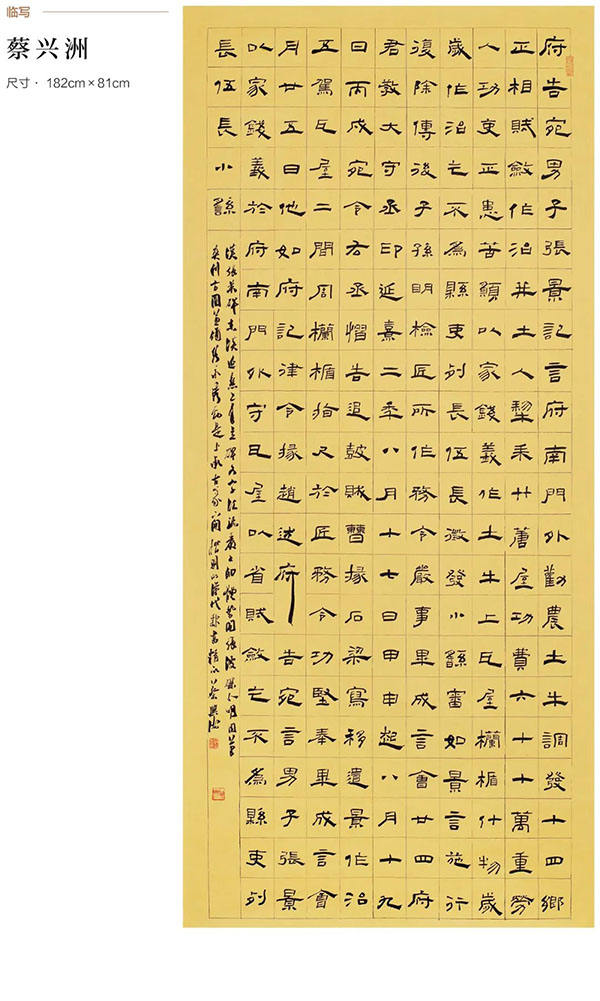 临写
蔡兴洲
尺寸· 182cm×81cm
府告宛男子張景記言府南門外勸農土牛調發十四鄉
正相賦斂作治并土人犂耒廿蓆屋功費六十十萬重勞
人功吏正患苦願以家錢義作土牛上瓦屋欄楯什物歲
歲作治乞不為縣吏列長伍長徵發小繇審如景言施行
復除傳後子孫明檢匠所作務令嚴事畢成言會廿四府
君教大守丞印延熹二年八月十七日甲申起八月十九
日丙戌宛令右丞慴告追鼓賊曹掾石梁寫移遣景作治
五駕瓦屋二間周欄楯拾尺於匠務令功堅奉畢成言會
月廿五日他如府記律令掾趙述府告宛言男子張景
以家錢義於府南門外守瓦屋以省賦斂乞不為縣吏列
長伍長小繇
漢張景碑
漢代隸書精品 蔡興洲